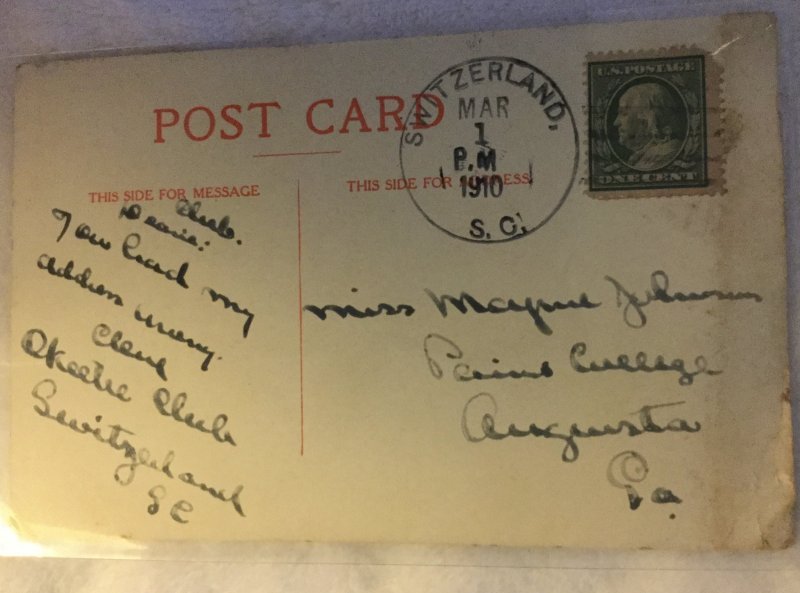 POST CARD
SWITZERLAND,
MAR
1
P.M
1910
S. C.
U.S. POSTAGE
ONE CENT
THIS SIDE FOR MESSAGE
THIS SIDE FOR ADDRESS
Club.
Dearie:
You had my
address wrong.
Okeetee Club
Switzerland
SC
Miss Mayme Johnson
Paine College
Augusta
Ga.